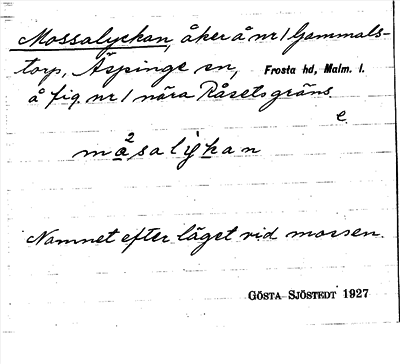 Mossalyckan, åker å nr 1 Gammals-
torp, Äspinge sn, Frosta hd, Malm. l.
å fig. nr 1 nära Råsets gräns
e.
Namnet efter läget vid mossen.
GÖSTA SJÖSTEDT 1927